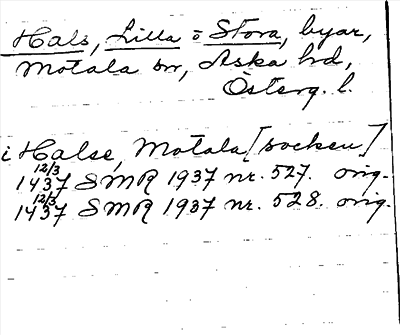 Hals, Lilla o Stora, byar,
Motala sn, Aska hd,
Österg. l.
i Halse, Motala [socken]
12/3 1437 SMR 1937 nr. 527. orig.
12/3 1437 SMR 1937 nr. 528. orig.